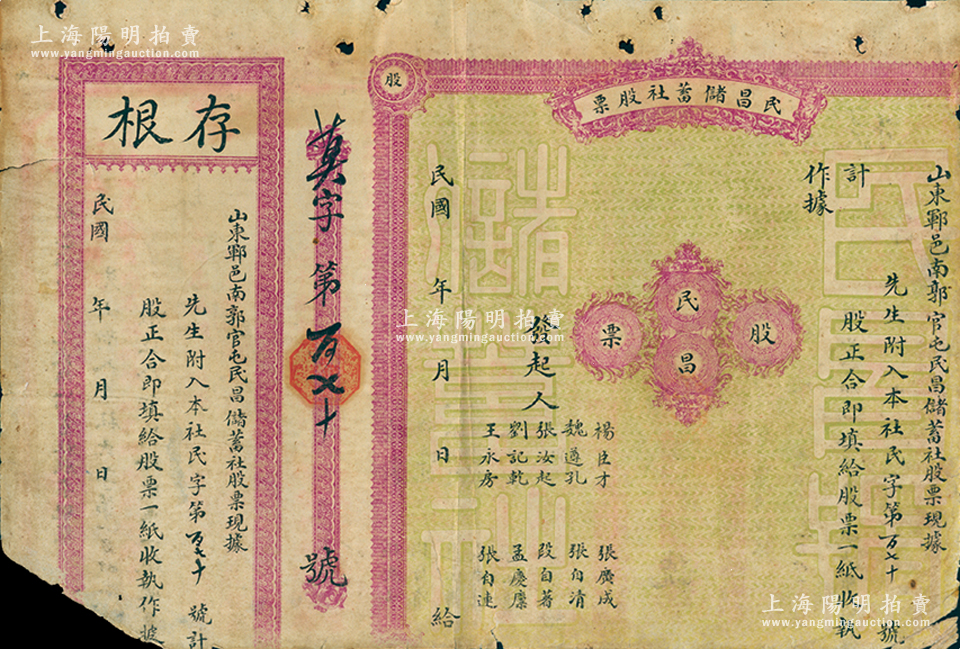 上海陽明拍賣
www.yangmingauction.com
上海陽明拍賣
www.yangmingauction.com
民昌儲蓄社股票
股
山東鄆邑南郭官屯民昌儲蓄社股票現據
先生附入本社民字第百七十號
計 股正合即填給股票一紙收執
作據
股
民昌
票
發起人
楊臣才 張廣成
魏遵孔 張自清
張汝起 段自著
劉記乾 孟慶廉
王永房 張自連
民國 年 月 日 給
民昌儲蓄社
字第百七十號
存根
山東鄆邑南郭官屯民昌儲蓄社股票現據
先生附入本社民字第百七十號計
股正合即填給股票一紙收執作據
民國 年 月 日
上海陽明拍賣
www.yangmingauction.com
上海陽明拍賣
www.yangmingauction.com